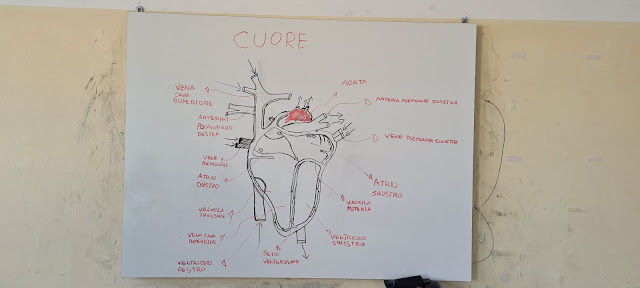 CUORE
VENA
CAVA
SUPERIORE
ARTERIA
POLMONARE
DESTRA
VENE
POLMONARI
ATRIO
DESTRO
VALVOLA
TRICUSPIDE
VENA CAVA
INFERIORE
VENTRICOLO
DESTRO
SETTO
VENTRICOLARE
AORTA
ARTERIA POLMONARE SINISTRA
VENE POLMONARI SINISTRE
ATRIO
SINISTRO
VALVOLA
MITRALE
VENTRICOLO
SINISTRO